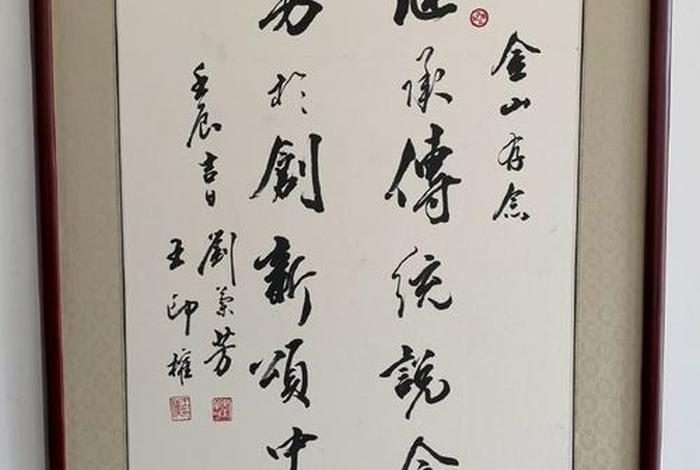 金山存念
承傳統說
於創新頌中
壬辰吉日
劉蘭芳
王印權